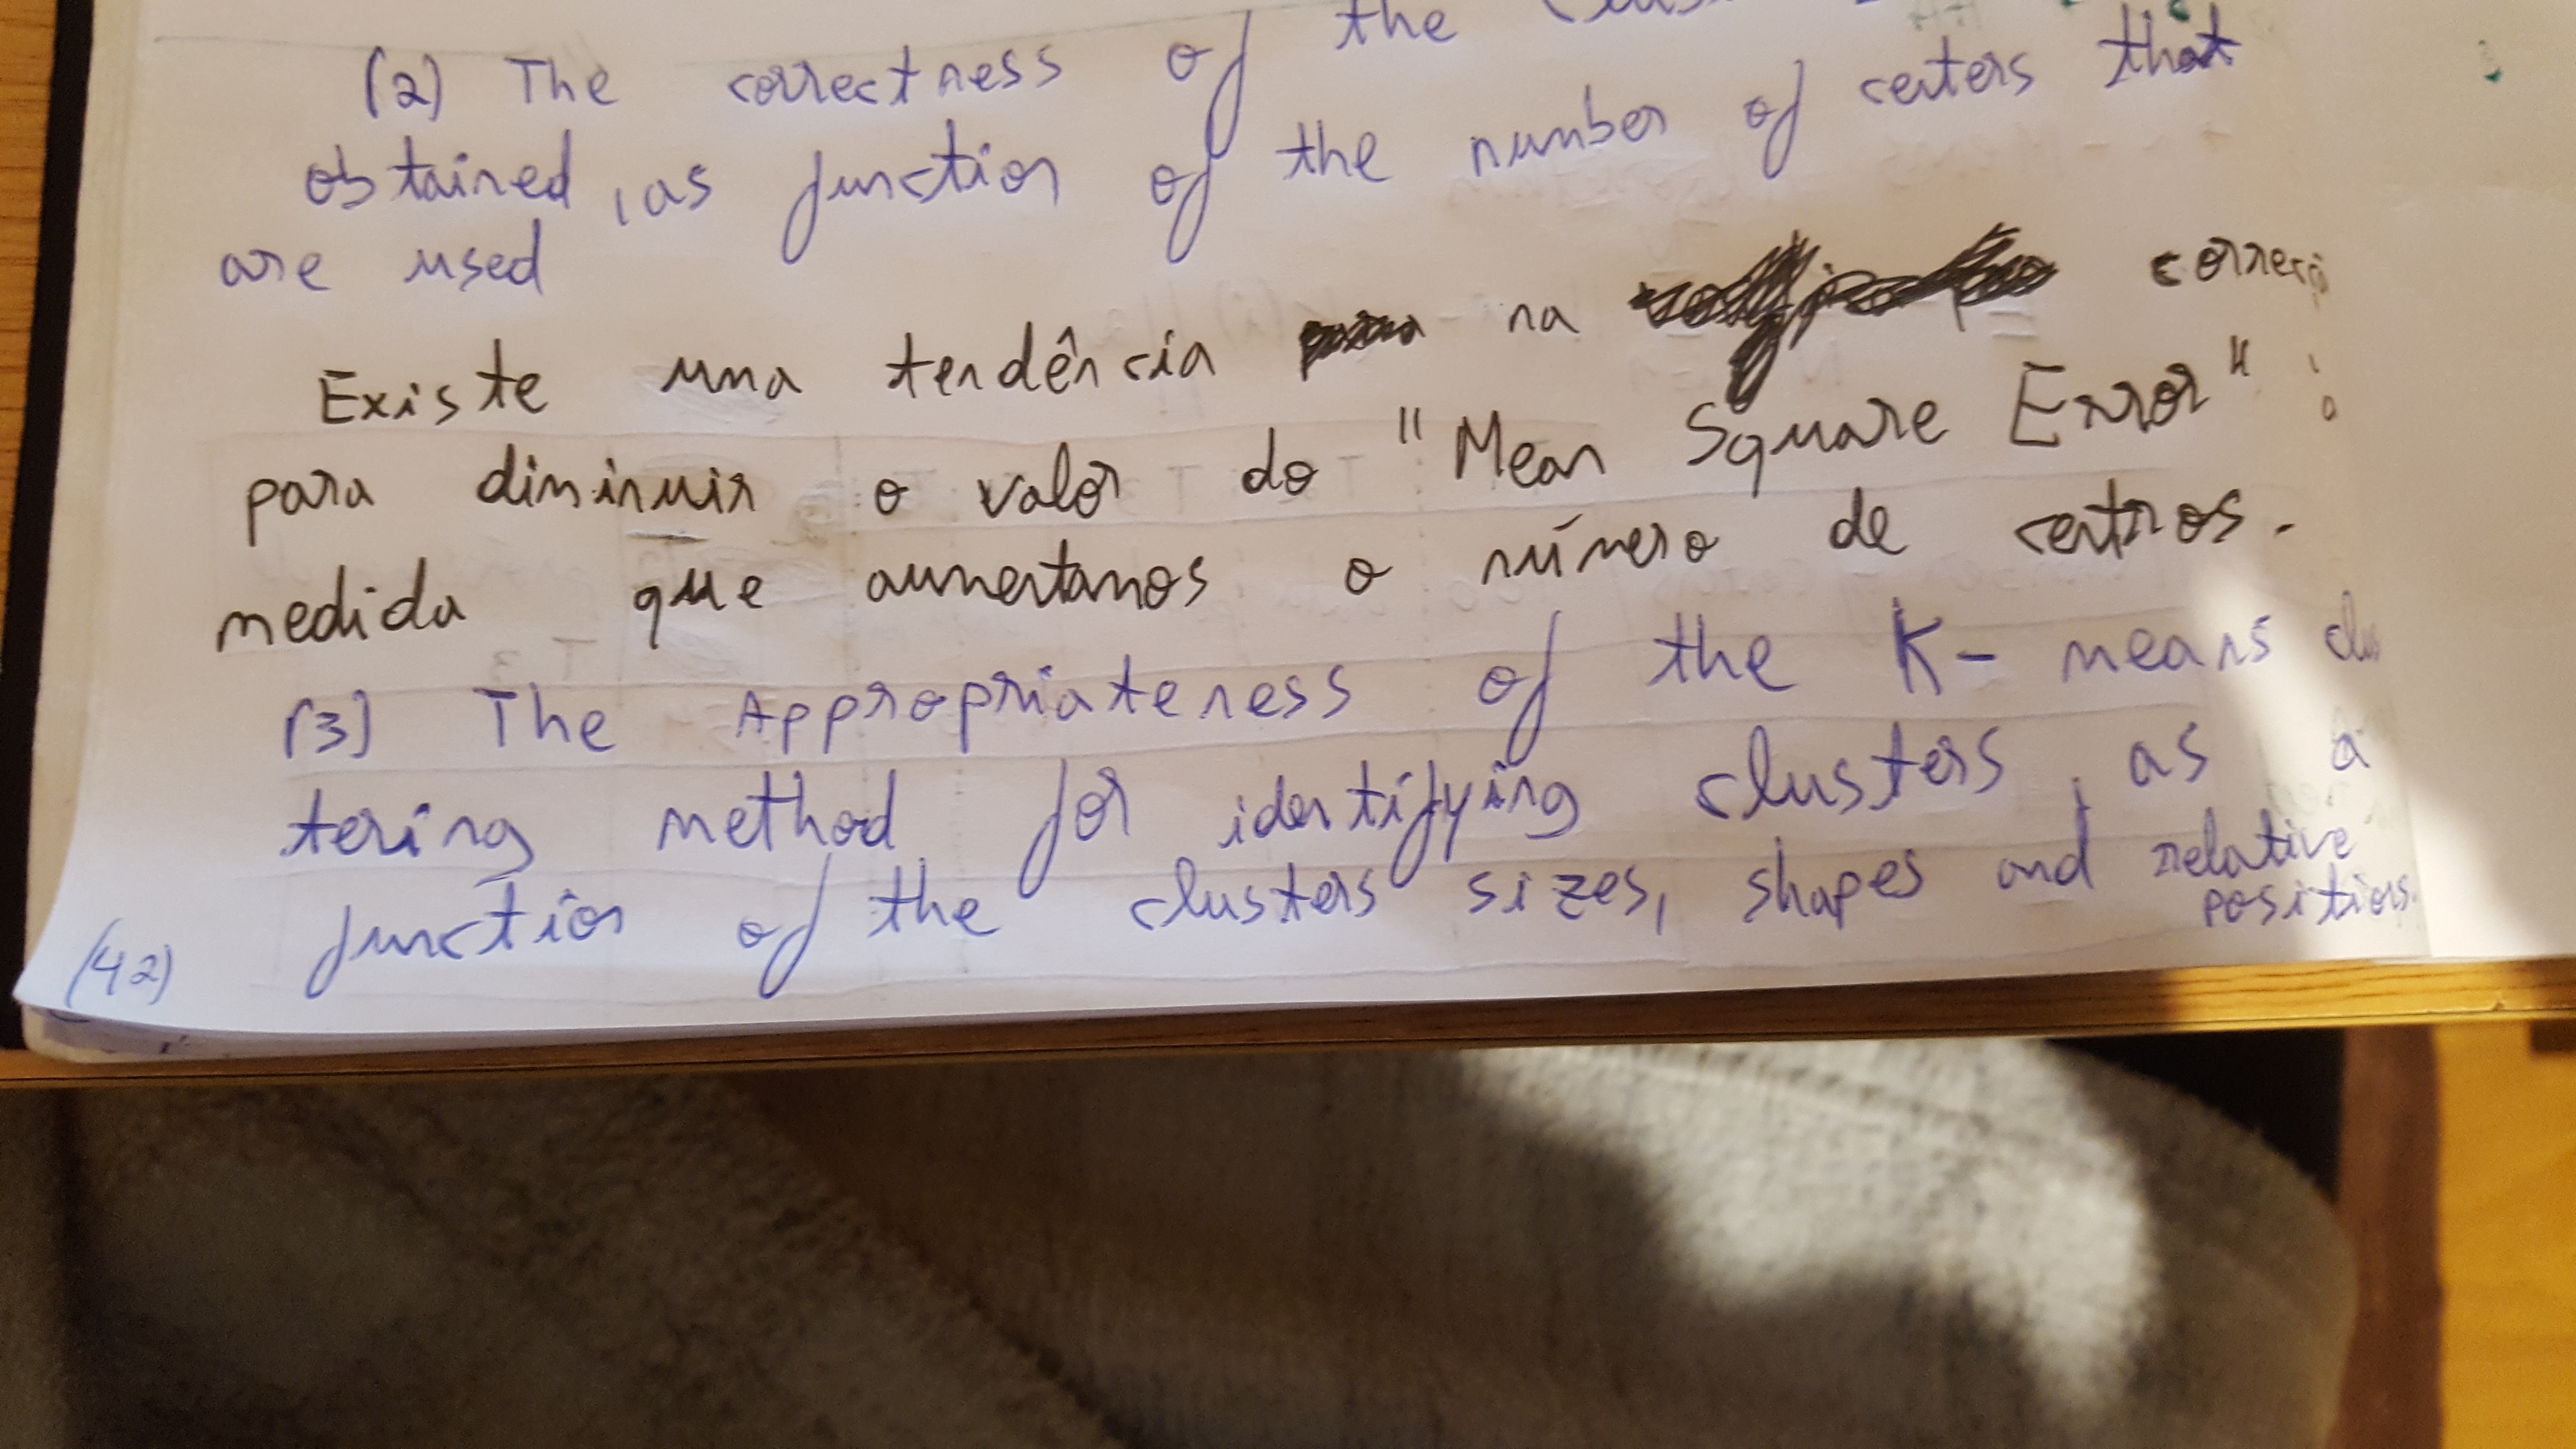 (2) The correctness of the
obtained, as function of the number of centers that
are used
Existe uma tendência na
para diminuir o valor do "Mean Square Error"
medida que aumentamos o número de centros.
(3) The Appropriateness of the K-means clus
tering method for identifying clusters, as a
function of the clusters sizes, shapes and relative
positions.
(42)